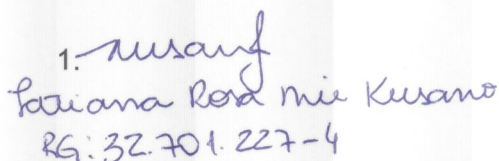 1. Kusanf
Tatiana Rosa Mie Kusano
RG: 32.701.227-4